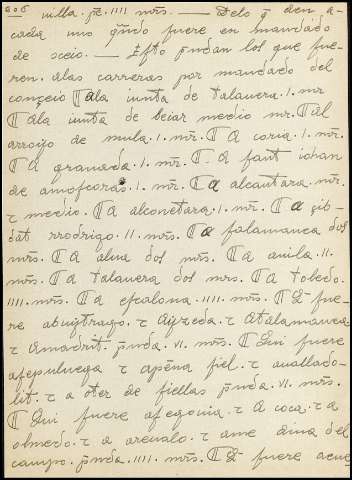 006 villa. p̄e. IIII mr̄s. — Delo q̄ den a
cada uno q̄ndo fuere en mandado
de 9ceio. — Esto p̄ndan los que fue-
ren. alas carreras por mandado del
conçeio ¶ ala iunta de talauera. I. mr
¶ Ala iunta de beiar medio mr. ¶ Al
arroyo de mula. I. mr̄. ¶ A coria. I. mr̄.
¶ A granada. I. mr̄. ¶. A sant iohan
de amoscoras. I. mr̄. ¶ a alcantara. mr̄.
⁊ medio. ¶ A alconetara. I. mr̄. ¶ a çib-
dat rrodrigo. II. mr̄s. ¶ a salamanca dos
mr̄s. ¶ A alua dos mr̄s. ¶ A auila. II.
mr̄s. ¶ A talauera dos mr̄s. ¶ A toledo.
IIII. mr̄s. ¶ A escalona. IIII. mr̄s. ¶ Q̄ fue-
re abuytrago. ⁊ Ayzeda. ⁊ Atalamanca
⁊ Amadrit. p̄nda. VI. mr̄s. ¶ Qui fuere
asepuluega ⁊ apēna fiel. ⁊ auallado-
lit. ⁊ a oter de siellas p̄nda. VI. mr̄s.
¶ Qui fuere asegouia ⁊ A coca. ⁊ a
olmedo. ⁊ a areualo. ⁊ ame dina del
campo. p̄nda. IIII. mr̄s. ¶ Q̄ fuere acue